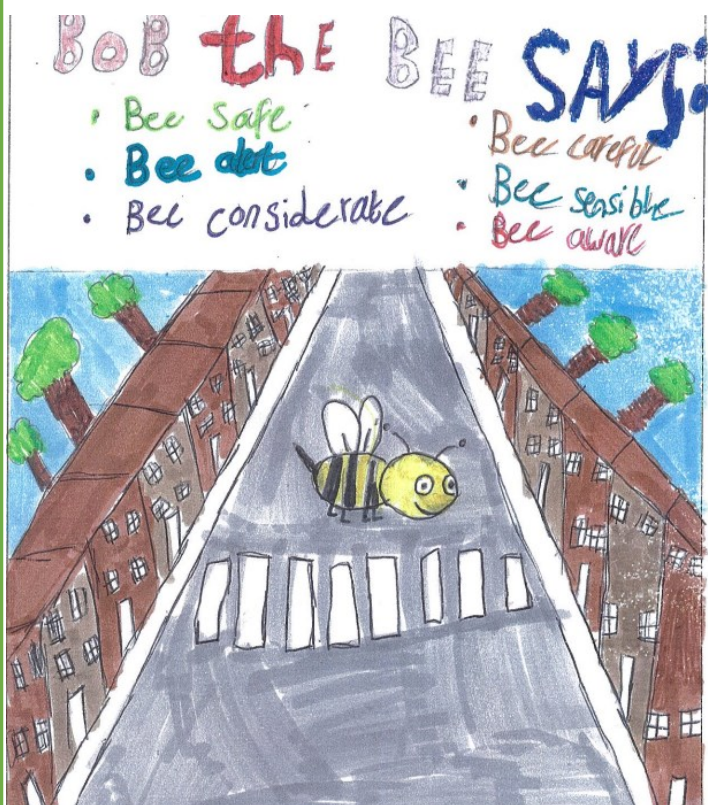 BOB the BEE SAYS:
• Bee safe
• Bee alert
• Bee considerate
• Bee careful
• Bee sensible
• Bee aware